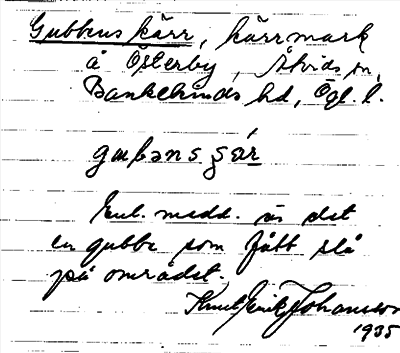 Gubbens kärr, kärrmark
å Österby, Åtvids sn,
Bankekinds hd, Ögl. l.
gɯbəns ʂär
Enl. medd. är det
en gubbe som fått slå
på området.
Knut Erik Johansson
1935